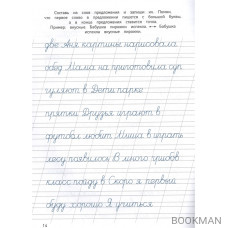 Составь из слов предложения и запиши их. Помни,
что первое слово в предложении пишется с большой буквы,
а в конце предложения ставится точка.
Пример: вкусные Бабушка пирожки испекла ⟷ Бабушка
испекла вкусные пирожки.
две Аня картины нарисовала
обед Мама на приготовила суп
гуляют в Дети парке
прятки Друзья играют в
футбол любит Миша в играть
лесу появилось В много грибов
класс пойду в Скоро я первый
буду хорошо Я учиться
14
BOOKMAN